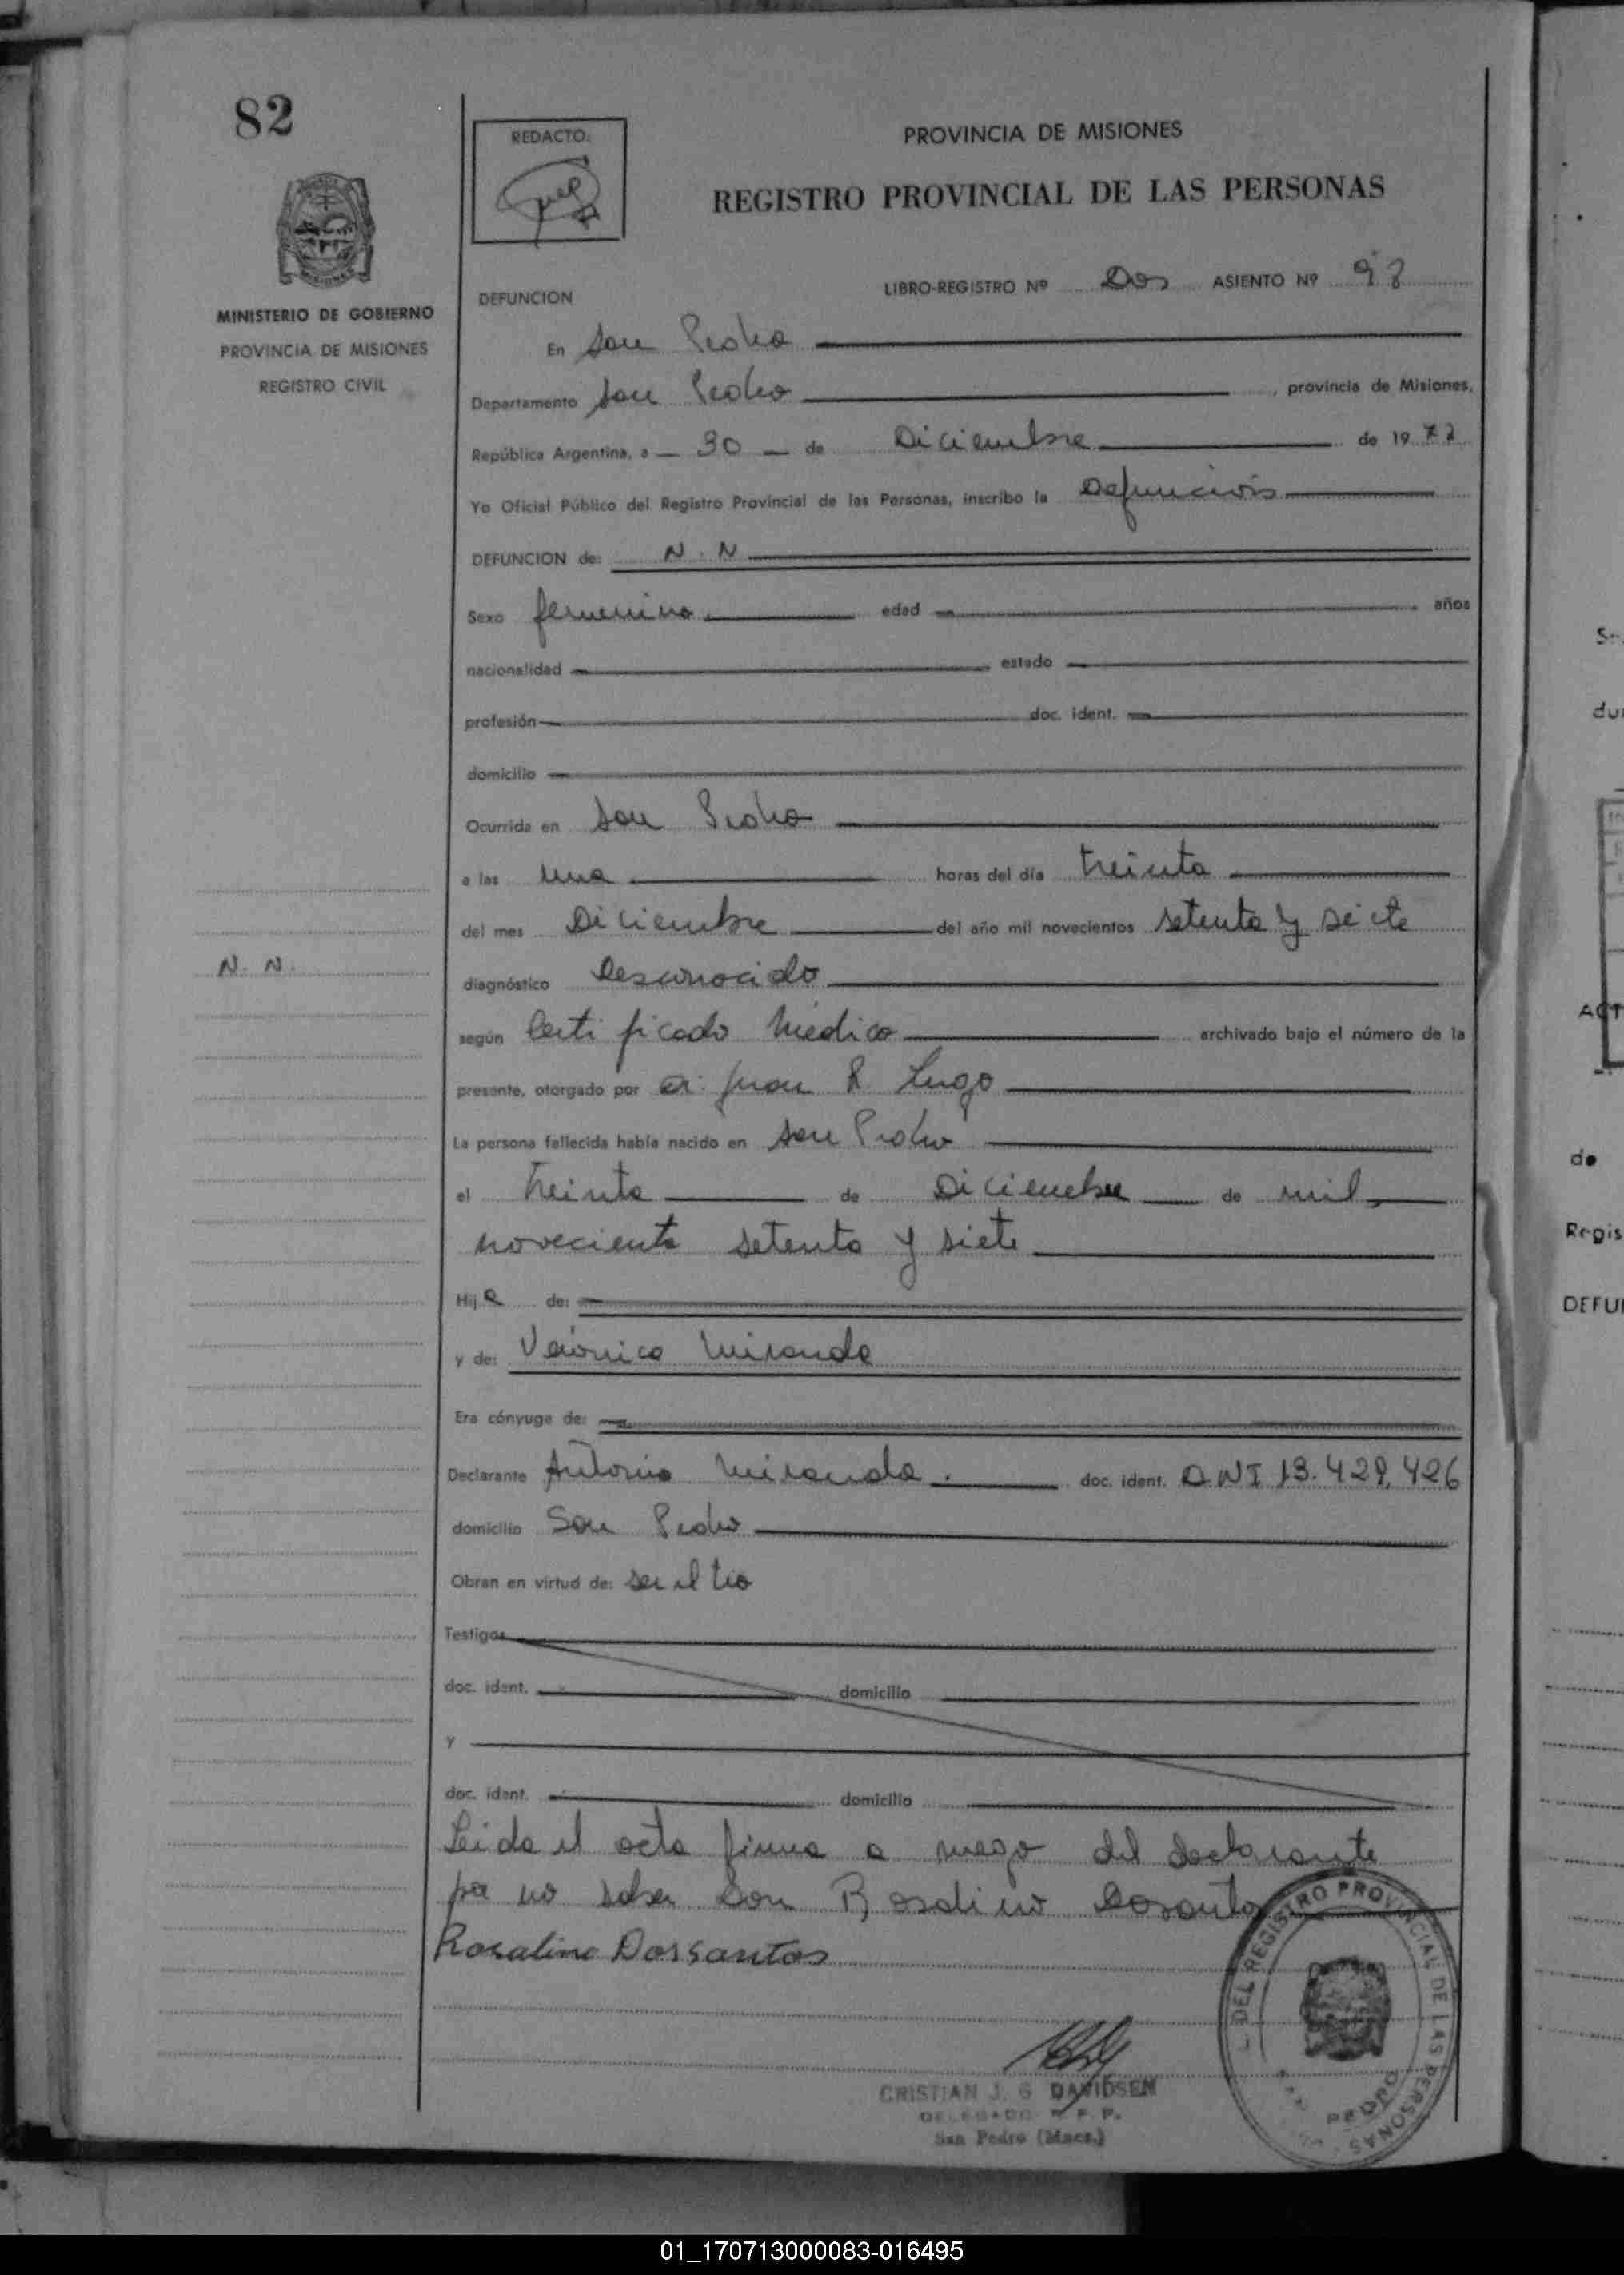 82
REDACTO:
PROVINCIA DE MISIONES
REGISTRO PROVINCIAL DE LAS PERSONAS
MINISTERIO DE GOBIERNO
PROVINCIA DE MISIONES
REGISTRO CIVIL
DEFUNCION
LIBRO-REGISTRO Nº Dos ASIENTO Nº
En San Pedro
Departamento San Pedro, provincia de Misiones,
República Argentina, a 30 de Diciembre de 19
Yo Oficial Público del Registro Provincial de las Personas, inscribo la Defunción
DEFUNCION de: N. N
Sexo femenino edad años
nacionalidad estado
profesión doc. ident.
domicilio
Ocurrida en San Pedro
a las una horas del día treinta
del mes Diciembre del año mil novecientos setenta y siete
N. N.
diagnóstico Desconocido
según Certificado Médico archivado bajo el número de la
presente, otorgado por Dr. Juan R. Lugo
La persona fallecida había nacido en San Pedro
el treinta de Diciembre de mil
novecients setenta y siete
Hija de:
y de: Verónica Miranda
Era cónyuge de:
Declarante Antonio Miranda. doc. ident. DNI 13.429.426
domicilio San Pedro
Obran en virtud de: ser el tio
Testigos
doc. ident. domicilio
y
doc. ident. domicilio
Leida el acta firma a ruego del declarante
por no saber Don Rosalino Dosantos
Rosalino Dossantos
DEL REGISTRO PROVINCIAL DE LAS PERSONAS
SAN PEDRO
CRISTIAN J. G DAVIDSEN
DELEGADO R. P. P.
San Pedro (Mnes.)
du
de
Regis
DEFU
01_170713000083-016495